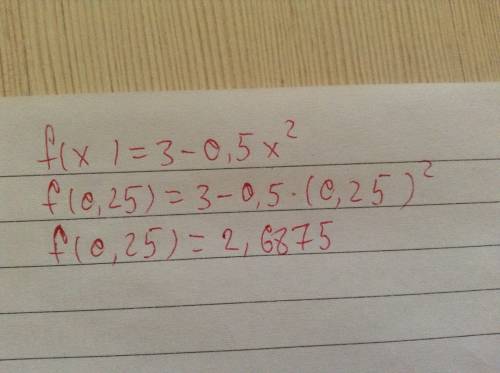 f(x) = 3 - 0,5x²
f(0,25) = 3 - 0,5·(0,25)²
f(0,25) = 2,6875